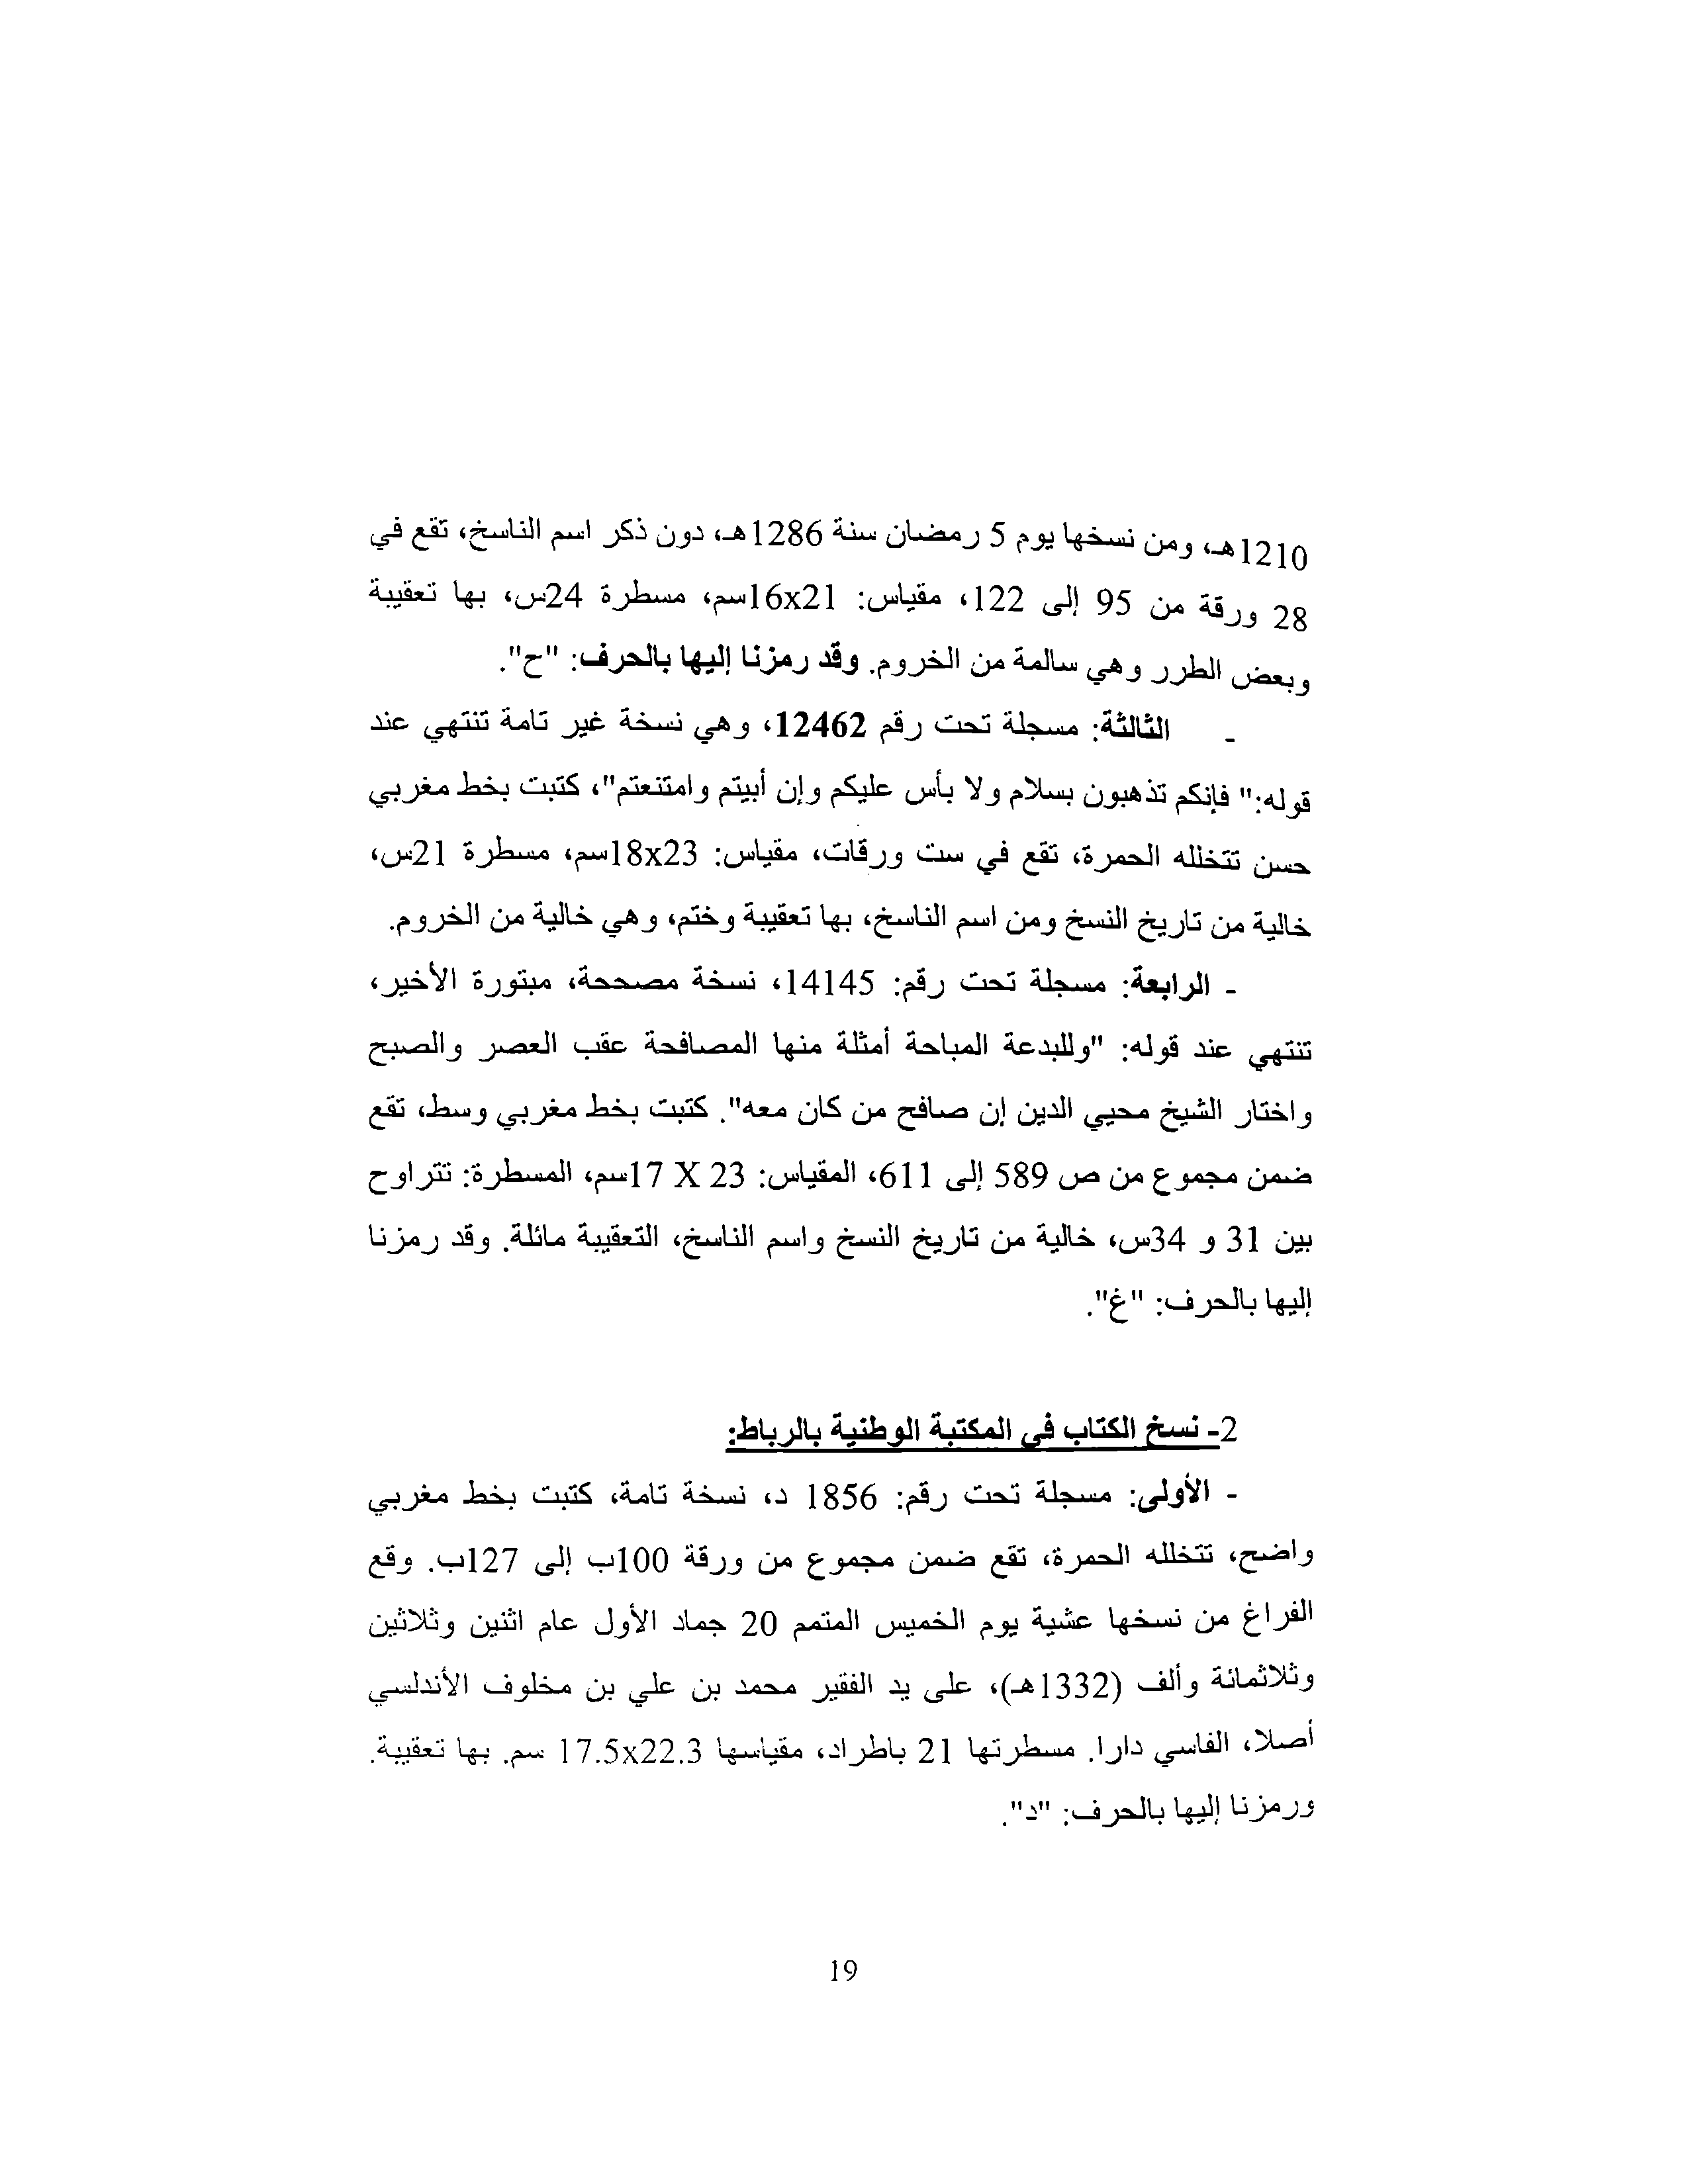 1210هـ، ومن نسخها يوم 5 رمضان سنة 1286هـ، دون ذكر اسم الناسخ، تقع في
28 ورقة من 95 إلى 122، مقياس: 16x21سم، مسطرة 24س، بها تعقيبة
وبعض الطرر وهي سالمة من الخروم. وقد رمزنا إليها بالحرف: "ح".
- الثالثة: مسجلة تحت رقم 12462، وهي نسخة غير تامة تنتهي عند
قوله:" فإنكم تذهبون بسلام ولا بأس عليكم وإن أبيتم وامتنعتم"، كتبت بخط مغربي
حسن تتخلله الحمرة، تقع في ست ورقات، مقياس: 18x23سم، مسطرة 21س،
خالية من تاريخ النسخ ومن اسم الناسخ، بها تعقيبة وختم، وهي خالية من الخروم.
- الرابعة: مسجلة تحت رقم: 14145، نسخة مصححة، مبتورة الأخير،
تنتهي عند قوله: "وللبدعة المباحة أمثلة منها المصافحة عقب العصر والصبح
واختار الشيخ محيي الدين إن صافح من كان معه". كتبت بخط مغربي وسط، تقع
ضمن مجموع من ص 589 إلى 611، المقياس: 23 X 17سم، المسطرة: تتراوح
بين 31 و 34س، خالية من تاريخ النسخ واسم الناسخ، التعقيبة مائلة. وقد رمزنا
إليها بالحرف: "غ".
2- نسخ الكتاب في المكتبة الوطنية بالرباط:
- الأولى: مسجلة تحت رقم: 1856 د، نسخة تامة، كتبت بخط مغربي
واضح، تتخلله الحمرة، تقع ضمن مجموع من ورقة 100ب إلى 127ب. وقع
الفراغ من نسخها عشية يوم الخميس المتمم 20 جماد الأول عام اثنين وثلاثين
وثلاثمائة وألف (1332هـ)، على يد الفقير محمد بن علي بن مخلوف الأندلسي
أصلا، الفاسي دارا. مسطرتها 21 باطراد، مقياسها 17.5x22.3 سم. بها تعقيبة.
ورمزنا إليها بالحرف: "د".
19